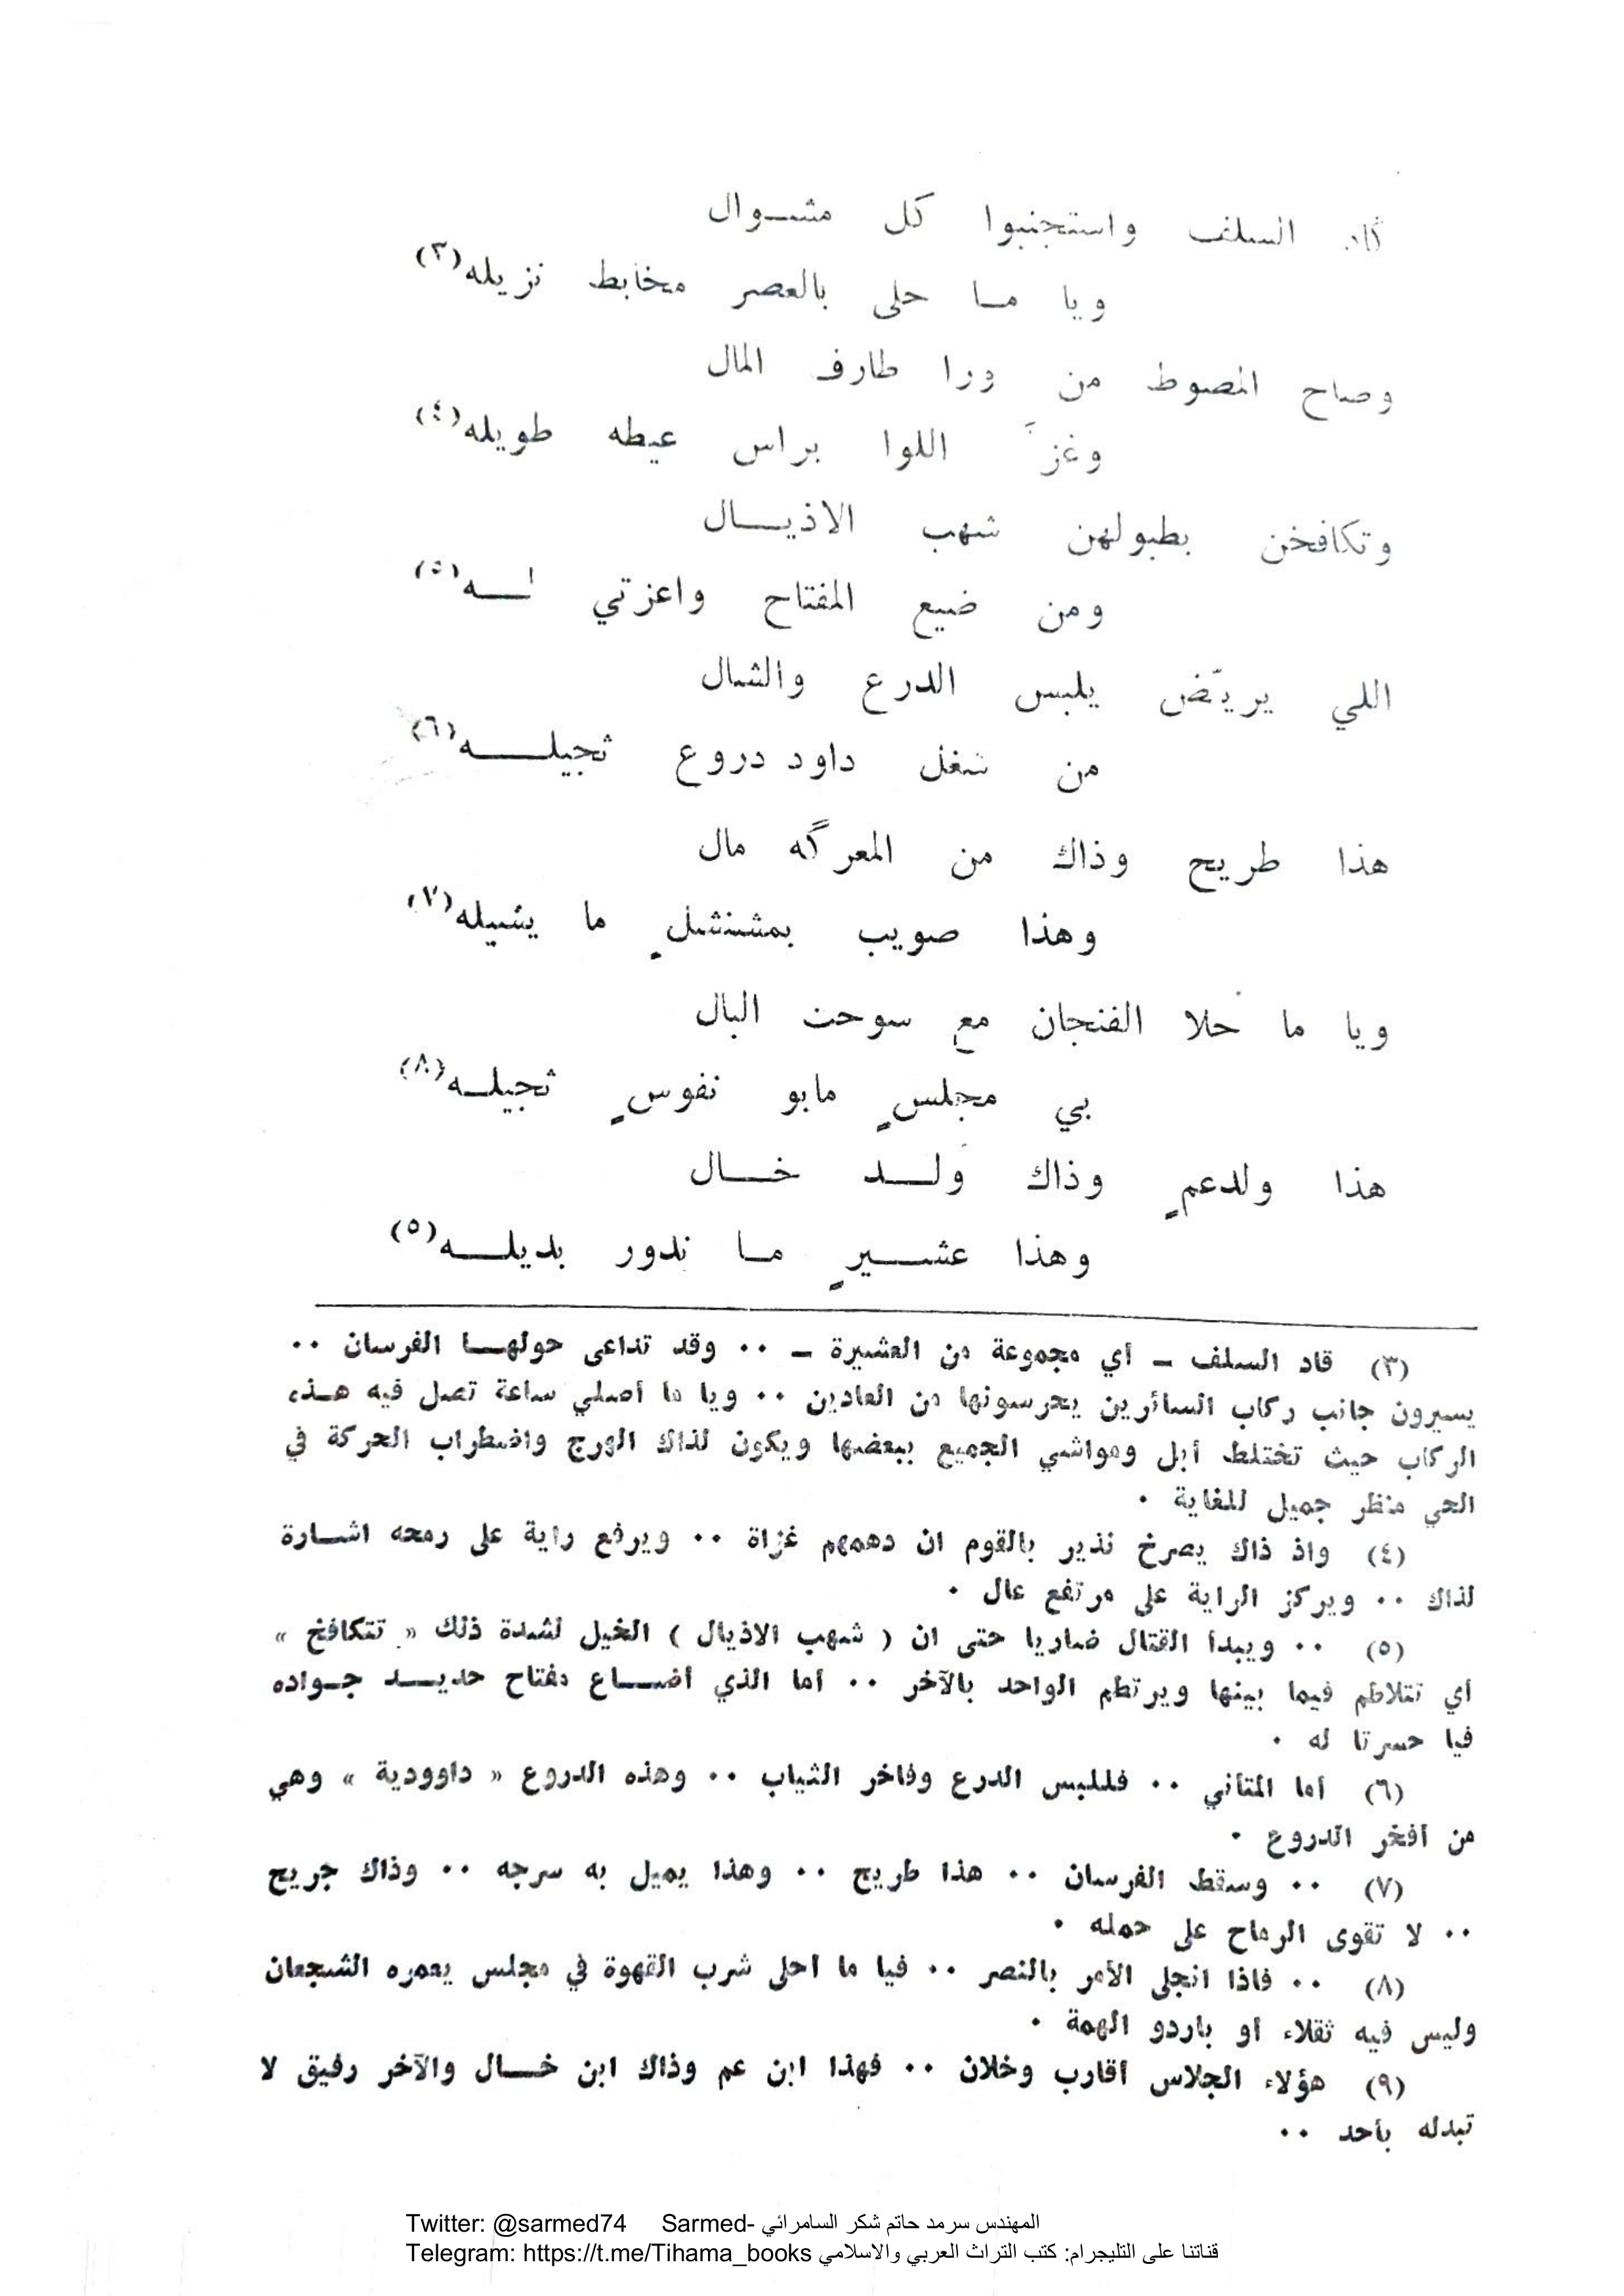 گاد السلف واستجنبوا كل مشـوال
ويا مـا حلى بالعصر مخابط نزيله(٣)
وصاح المصوط من ورا طارف المال
وغزَّ اللوا براس عيطه طويله(٤)
وتكافخن بطبولهن شهب الاذيــال
ومن ضيع المفتاح واعزتي لــه(٥)
اللي يريّض يلبس الدرع والشال
من شغل داود دروع ثجيلـــه(٦)
هذا طريح وذاك من المعرگه مال
وهذا صويب بمشنشلٍ ما يشيله(٧)
ويا ما حلا الفنجان مع سوحت البال
بي مجلسٍ مابو نفوسٍ ثجيلـه(٨)
هذا ولدعمٍ وذاك ولــد خــال
وهذا عشــيرٍ مـا ندور بديلــه(٥)
(٣) قاد السلف – أي مجموعة من العشيرة – ٠٠ وقد تداعى حولهـا الفرسان ٠٠
يسيرون جانب ركاب السائرين يحرسونها من العادين ٠٠ ويا ما أصلي ساعة تصل فيه هـذه
الركاب حيث تختلط أبل ومواشي الجميع ببعضها ويكون لذاك الهرج واضطراب الحركة في
الحي منظر جميل للغاية ٠
(٤) واذ ذاك يصرخ نذير بالقوم ان دهمهم غزاة ٠٠ ويرفع راية على رمحه اشـارة
لذاك ٠٠ ويركز الراية على مرتفع عال ٠
(٥) ٠٠ ويبدأ القتال ضاريا حتى ان ( شهب الاذيال ) الخيل لشدة ذلك « تتكافخ »
أي تتلاطم فيما بينها ويرتطم الواحد بالآخر ٠٠ أما الذي أضــاع مفتاح حديــد جـواده
فيا حسرتا له ٠
(٦) أما المتأني ٠٠ فلليبس الدرع وفاخر الثياب ٠٠ وهذه الدروع « داوودية » وهي
من أفخر الدروع ٠
(٧) ٠٠ وسقط الفرسان ٠٠ هذا طريح ٠٠ وهذا يميل به سرجه ٠٠ وذاك جريح
٠٠ لا تقوى الرماح على حمله ٠
(٨) ٠٠ فاذا انجلى الأمر بالنصر ٠٠ فيا ما احلى شرب القهوة في مجلس يعمره الشجعان
وليس فيه ثقلاء أو باردو الهمة ٠
(٩) هؤلاء الجلاس أقارب وخلان ٠٠ فهذا ابن عم وذاك ابن خــال والآخر رفيق لا
تبدله بأحد ٠٠
Twitter: @sarmed74 Sarmed- المهندس سرمد حاتم شكر السامرائي
Telegram: https://t.me/Tihama_books قناتنا على التليجرام: كتب التراث العربي والاسلامي